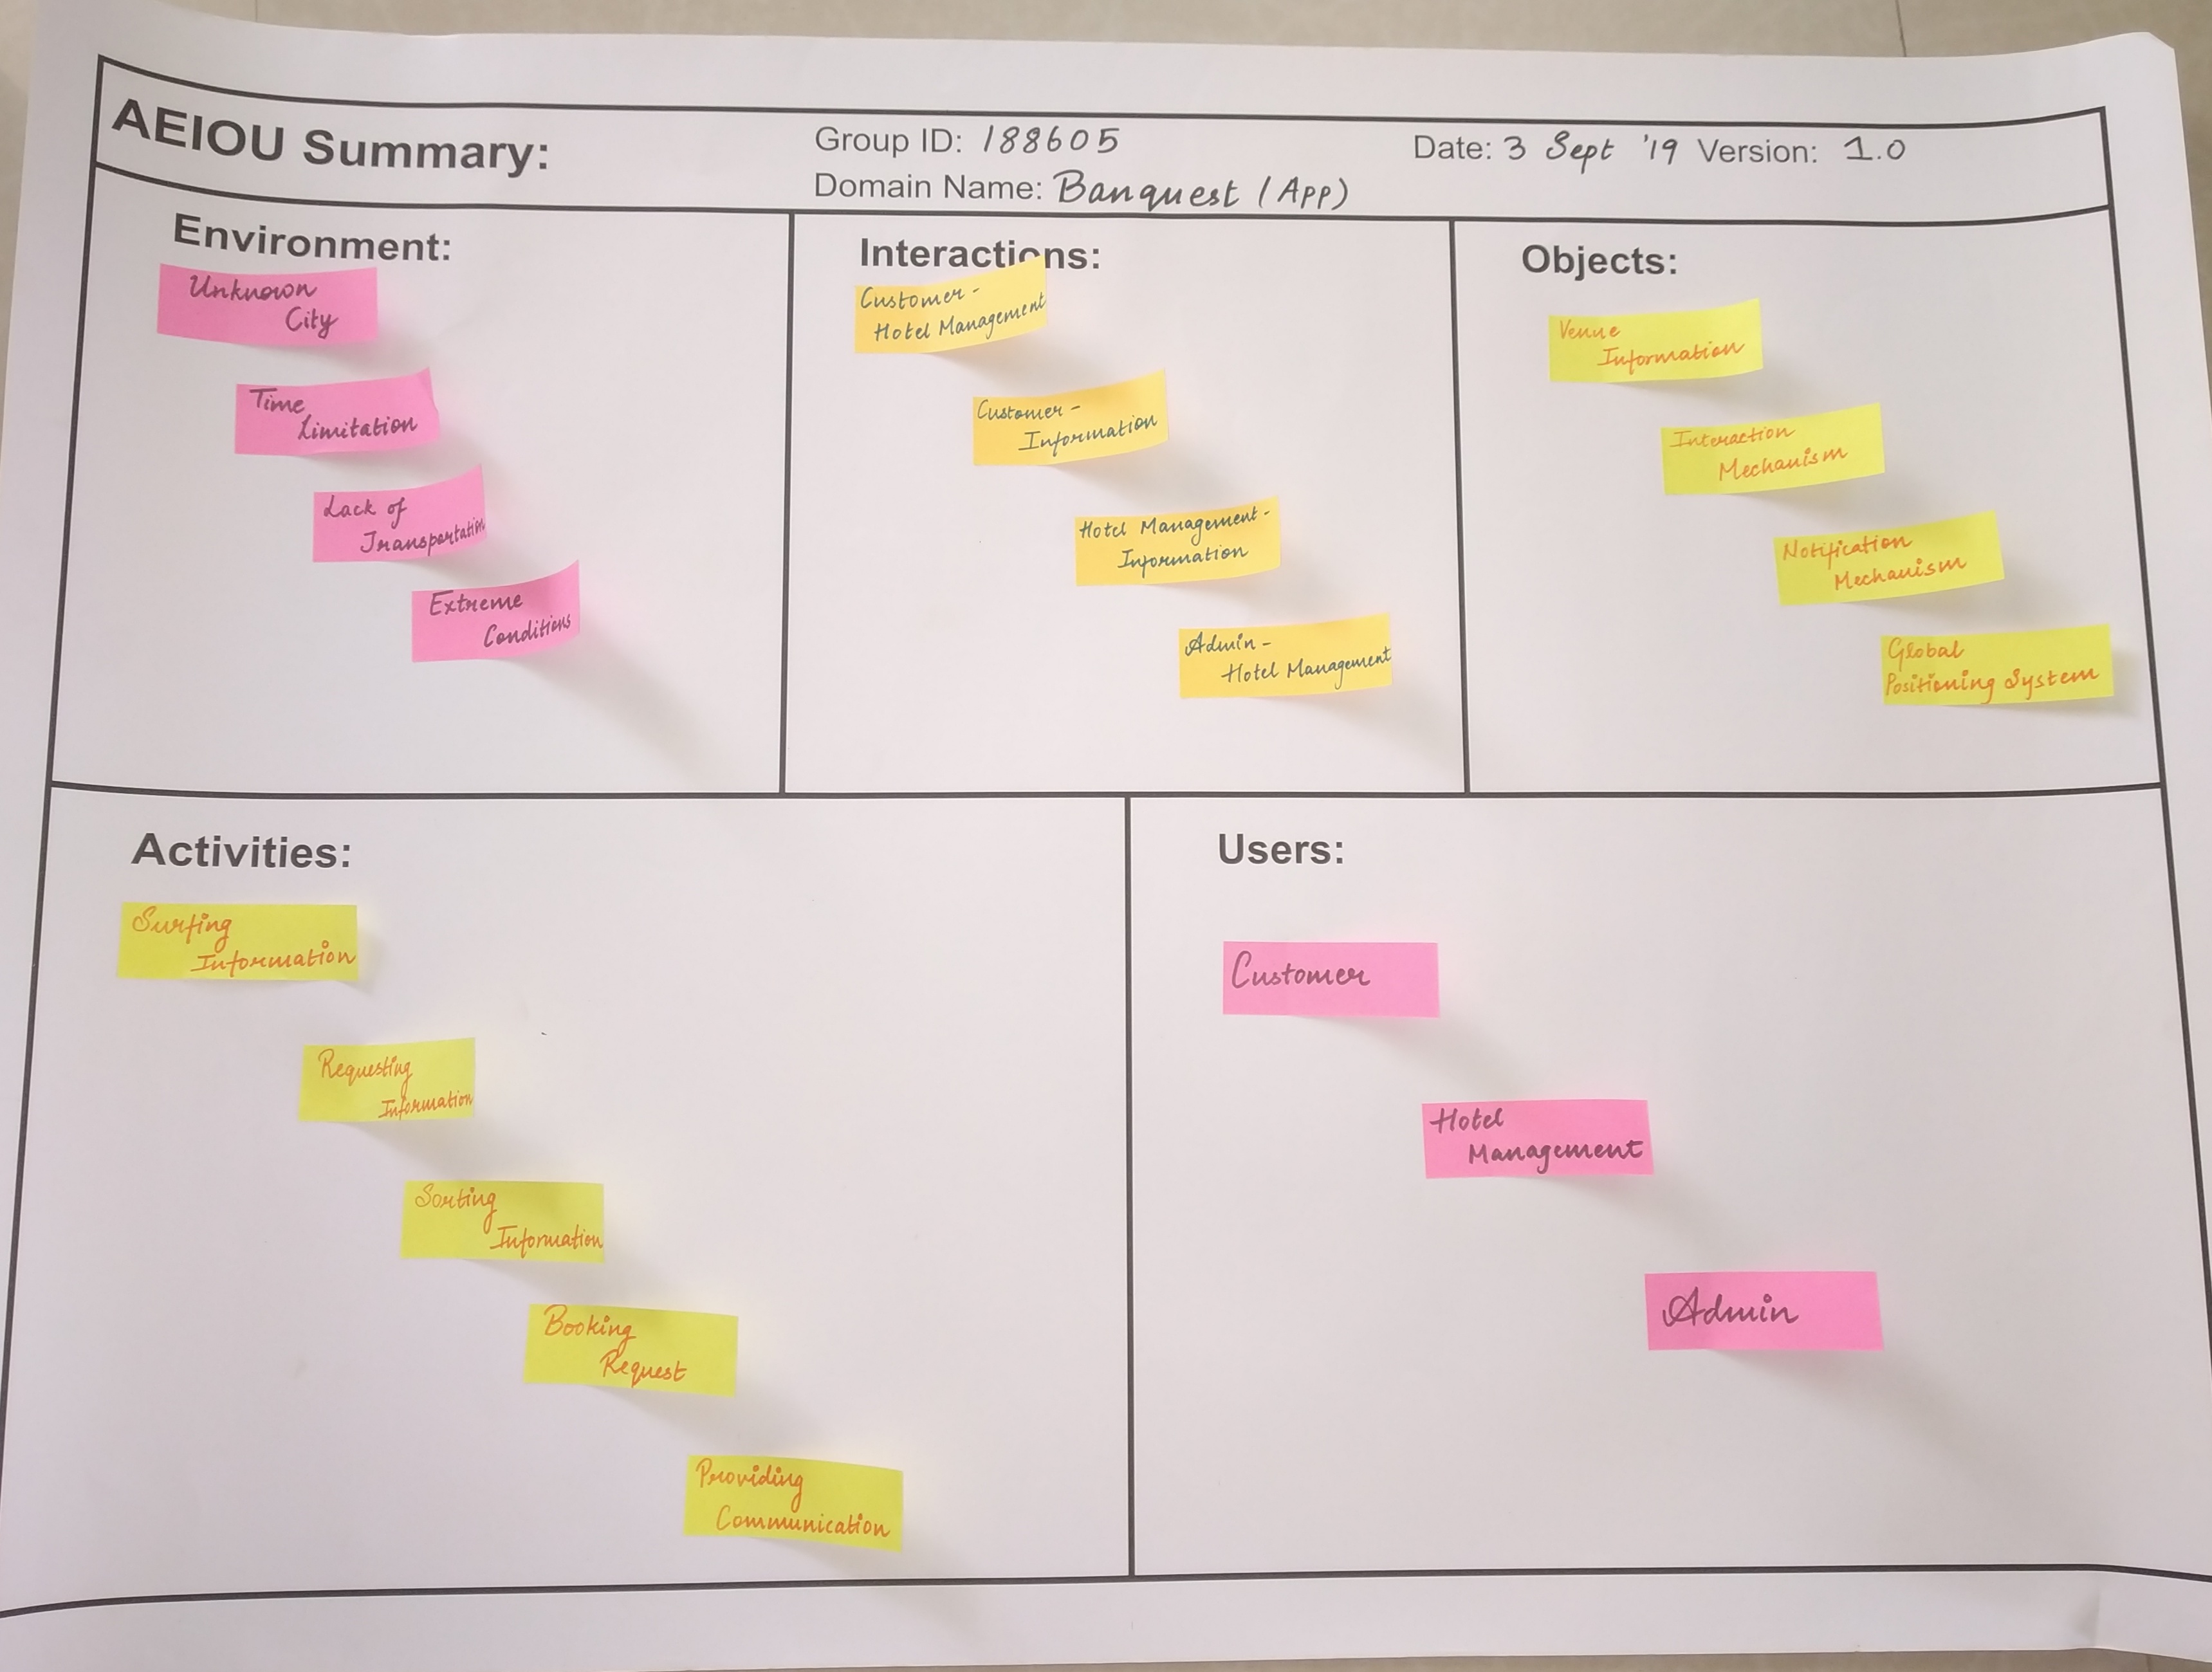 AEIOU Summary:
Group ID: 188605
Date: 3 Sept '19 Version: 1.0
Domain Name: Banquest (App)
Environment:
Unknown
City
Time
Limitation
Lack of
Transportation
Extreme
Conditions
Interactions:
Customer -
Hotel Management
Customer -
Information
Hotel Management -
Information
Admin -
Hotel Management
Objects:
Venue
Information
Interaction
Mechanism
Notification
Mechanism
Global
Positioning System
Activities:
Surfing
Information
Requesting
Information
Sorting
Information
Booking
Request
Providing
Communication
Users:
Customer
Hotel
Management
Admin